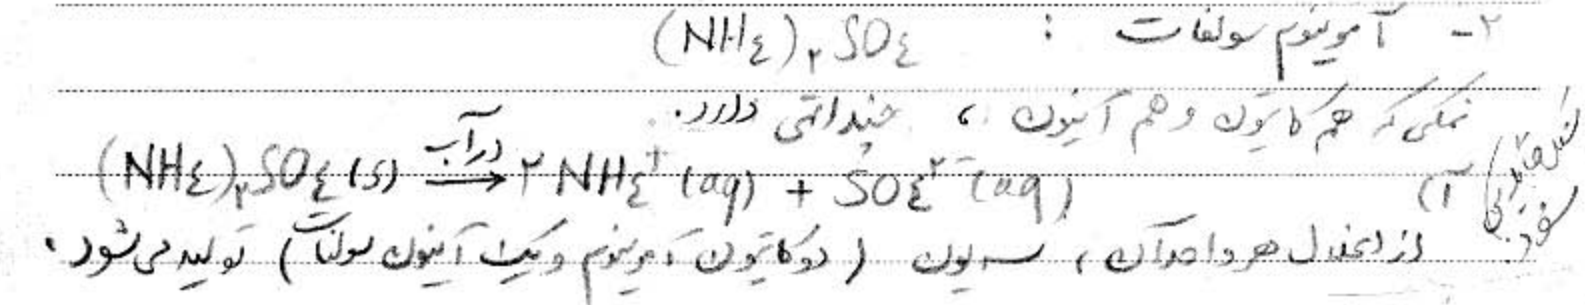 ۲- آمونیوم سولفات : (NH۴)۲SO۴
نمکی که هم کاتیون و هم آنیون، چنداتمی دارد.
آ) (NH۴)۲SO۴(s) در آب → ۲NH۴⁺(aq) + SO۴²⁻(aq)
از انحلال هر واحد آن، سه یون (دو کاتیون آمونیوم و یک آنیون سولفات) تولید می‌شود.